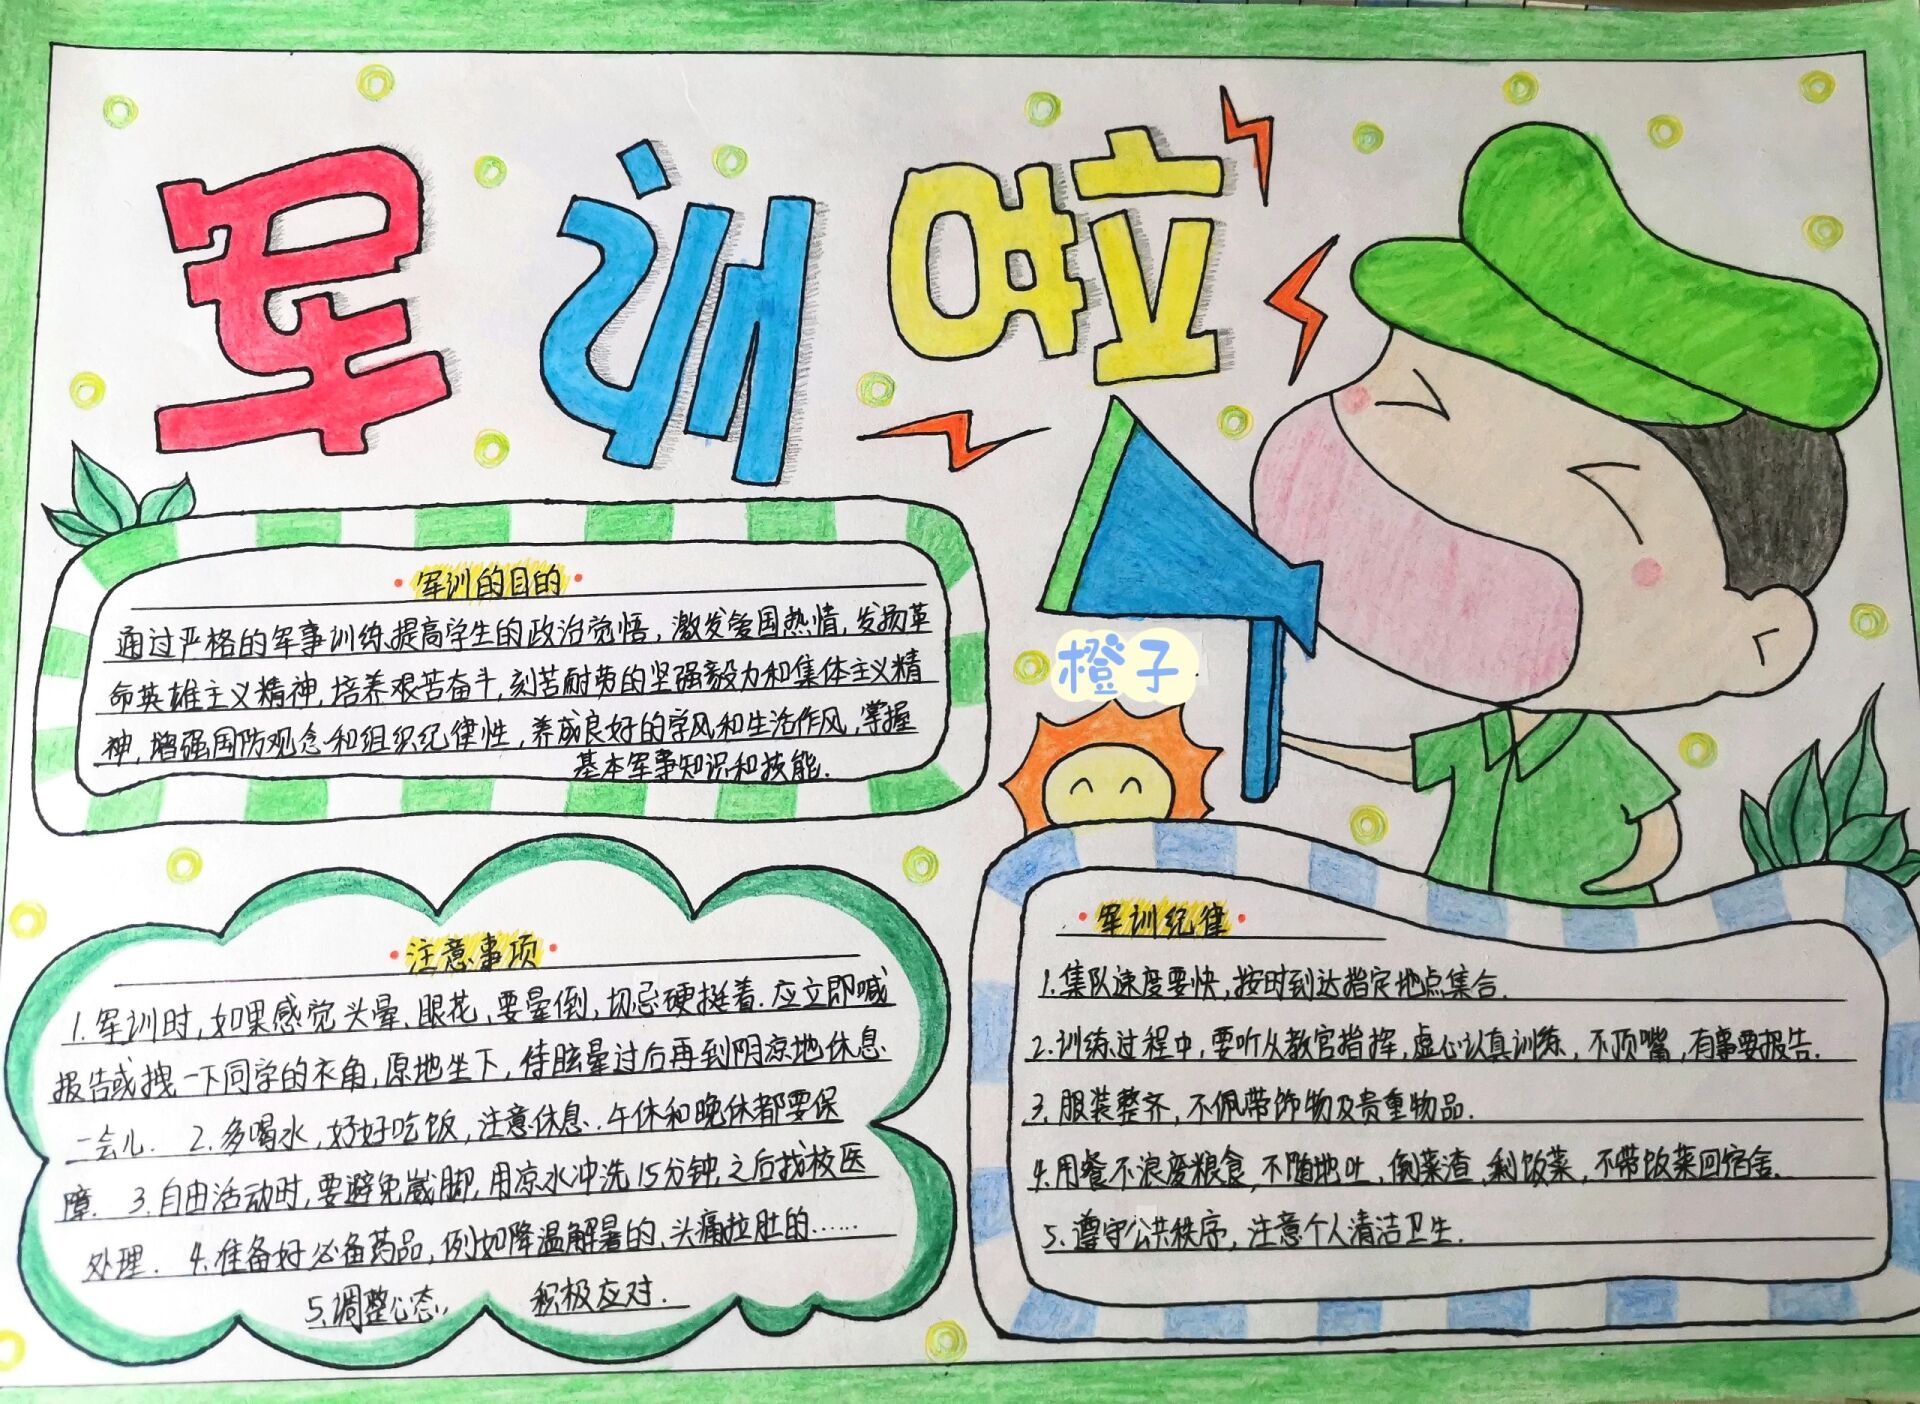 军训啦
军训的目的
通过严格的军事训练提高学生的政治觉悟，激发爱国热情，发扬革
命英雄主义精神，培养艰苦奋斗，刻苦耐劳的坚强毅力和集体主义精
神，增强国防观念和组织纪律性，养成良好的学风和生活作风，掌握
基本军事知识和技能．
橙子
注意事项
1.军训时，如果感觉头晕、眼花，要晕倒，切忌硬挺着．应立即喊
报告或拽一下同学的衣角，原地坐下，待眩晕过后再到阴凉地休息
一会儿．2.多喝水，好好吃饭，注意休息．午休和晚休都要保
障．3.自由活动时，要避免崴脚，用凉水冲洗15分钟，之后找校医
处理．4.准备好必备药品，例如降温解暑的、头痛拉肚的……
5.调整心态，积极应对．
军训纪律
1.集队速度要快，按时到达指定地点集合．
2.训练过程中，要听从教官指挥，虚心认真训练，不顶嘴，有事要报告．
3.服装整齐，不佩带饰物及贵重物品．
4.用餐不浪废粮食，不随地吐、倒菜渣、剩饭菜，不带饭菜回宿舍．
5.遵守公共秩序，注意个人清洁卫生．